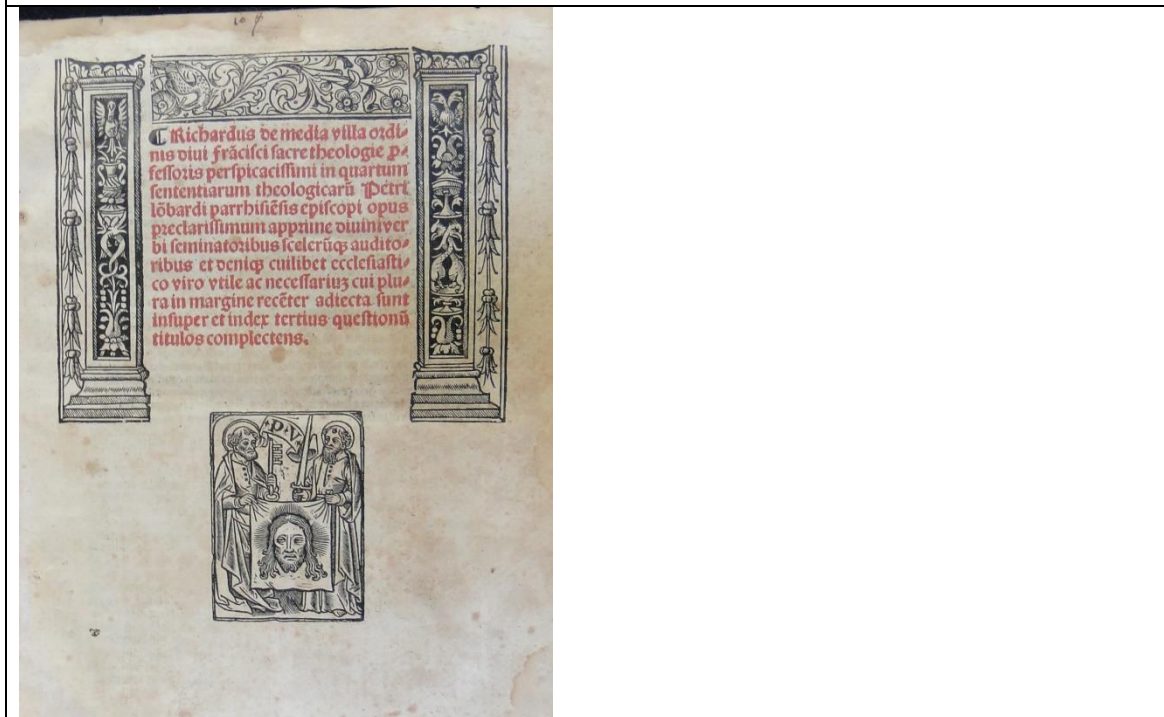 10
¶ Richardus de media villa ordi⸗
nis diui frācisci sacre theologie ꝓ⸗
fessoris perspicacissimi in quartum
sententiarum theologicarū Petri
lōbardi parrhisiēsis episcopi opus
preclarissimum apprime diuiniver
bi seminatoribus scelerūqꝫ audito⸗
ribus et deniqꝫ cuilibet ecclesiasti⸗
co viro vtile ac necessariuꝫ cui plu⸗
ra in margine recēter adiecta sunt
insuper et index tertius questionū
titulos complectens.
P·V